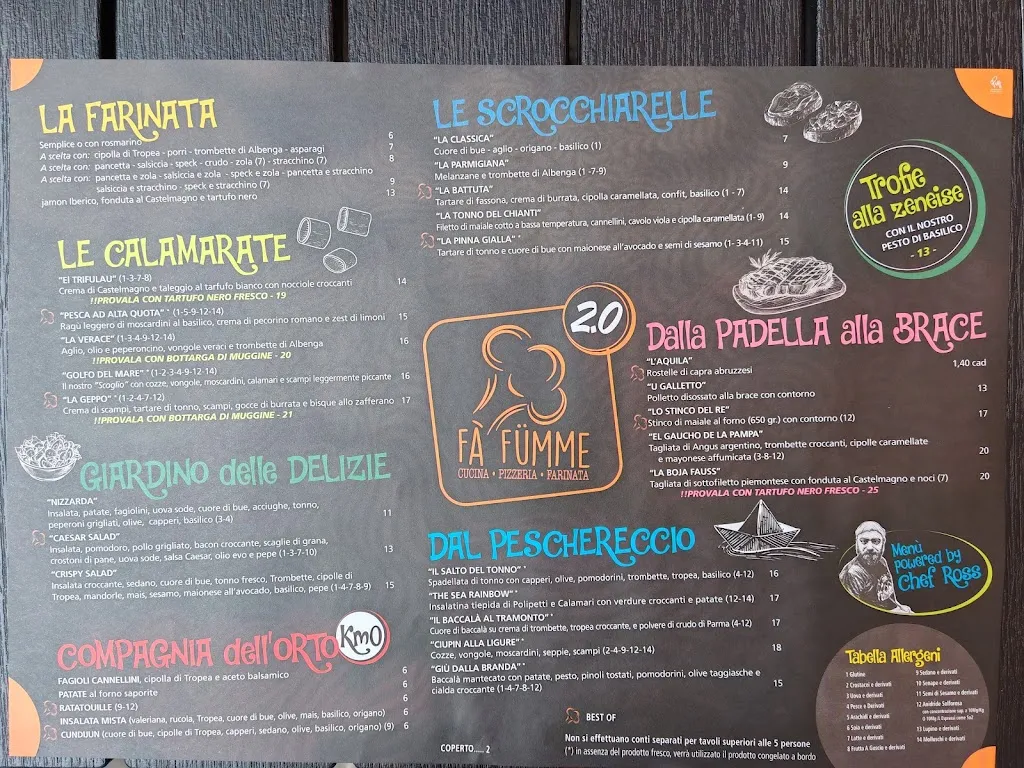 LA FARINATA
Semplice o con rosmarino 6
A scelta con: cipolla di Tropea - porri - trombette di Albenga - asparagi 7
A scelta con: pancetta - salsiccia - speck - crudo - zola (7) - stracchino (7) 8
A scelta con: pancetta e zola - salsiccia e zola - speck e zola - pancetta e stracchino
salsiccia e stracchino - speck e stracchino (7) 9
jamon Iberico, fonduta al Castelmagno e tartufo nero 13
LE CALAMARATE
"El TRIFULAU" (1-3-7-8)
Crema di Castelmagno e taleggio al tartufo bianco con nocciole croccanti 14
!!PROVALA CON TARTUFO NERO FRESCO - 19
"PESCA AD ALTA QUOTA" * (1-5-9-12-14)
Ragù leggero di moscardini al basilico, crema di pecorino romano e zest di limoni 15
"LA VERACE" (1-3-4-9-12-14)
Aglio, olio e peperoncino, vongole veraci e trombette di Albenga 16
!!PROVALA CON BOTTARGA DI MUGGINE - 20
"GOLFO DEL MARE" * (1-2-3-4-9-12-14)
Il nostro "Scoglio" con cozze, vongole, moscardini, calamari e scampi leggermente piccante 16
"LA GEPPO" * (1-2-4-7-12)
Crema di scampi, tartare di tonno, scampi, gocce di burrata e bisque allo zafferano 17
!!PROVALA CON BOTTARGA DI MUGGINE - 21
GIARDINO delle DELIZIE
"NIZZARDA"
Insalata, patate, fagiolini, uova sode, cuore di bue, acciughe, tonno,
peperoni grigliati, olive, capperi, basilico (3-4) 11
"CAESAR SALAD"
Insalata, pomodoro, pollo grigliato, bacon croccante, scaglie di grana,
crostoni di pane, uova sode, salsa Caesar, olio evo e pepe (1-3-7-10) 13
"CRISPY SALAD"
Insalata croccante, sedano, cuore di bue, tonno fresco, Trombette, cipolle di
Tropea, mandorle, mais, sesamo, maionese all'avocado, basilico, pepe (1-4-7-8-9) 15
COMPAGNIA dell'ORTO Km0
FAGIOLI CANNELLINI, cipolla di Tropea e aceto balsamico 6
PATATE al forno saporite 6
RATATOUILLE (9-12) 6
INSALATA MISTA (valeriana, rucola, Tropea, cuore di bue, olive, mais, basilico, origano) 6
CUNDIJUN (cuore di bue, cipolle di Tropea, capperi, sedano, olive, basilico, origano) (9) 6
LE SCROCCHIARELLE
"LA CLASSICA"
Cuore di bue - aglio - origano - basilico (1) 7
"LA PARMIGIANA"
Melanzane e trombette di Albenga (1 -7-9) 9
"LA BATTUTA"
Tartare di fassona, crema di burrata, cipolla caramellata, confit, basilico (1 - 7) 14
"LA TONNO DEL CHIANTI"
Filetto di maiale cotto a bassa temperatura, cannellini, cavolo viola e cipolla caramellata (1- 9) 14
"LA PINNA GIALLA" *
Tartare di tonno e cuore di bue con maionese all'avocado e semi di sesamo (1- 3-4-11) 15
Trofie
alla zeneise
CON IL NOSTRO
PESTO DI BASILICO
- 13 -
2.0
FÀ FÜMME
CUCINA • PIZZERIA • FARINATA
Dalla PADELLA alla BRACE
"L'AQUILA"
Rostelle di capra abruzzesi 1,40 cad
"U GALLETTO"
Polletto disossato alla brace con contorno 13
"LO STINCO DEL RE"
Stinco di maiale al forno (650 gr.) con contorno (12) 17
"EL GAUCHO DE LA PAMPA"
Tagliata di Angus argentino, trombette croccanti, cipolle caramellate
e mayonese affumicata (3-8-12) 20
"LA BOJA FAUSS"
Tagliata di sottofiletto piemontese con fonduta al Castelmagno e noci (7) 20
!!PROVALA CON TARTUFO NERO FRESCO - 25
DAL PESCHERECCIO
"IL SALTO DEL TONNO" *
Spadellata di tonno con capperi, olive, pomodorini, trombette, tropea, basilico (4-12) 16
"THE SEA RAINBOW" *
Insalatina tiepida di Polipetti e Calamari con verdure croccanti e patate (12-14) 17
"IL BACCALÀ AL TRAMONTO" *
Cuore di baccalà su crema di trombette, tropea croccante, e polvere di crudo di Parma (4-12) 17
"CIUPIN ALLA LIGURE" *
Cozze, vongole, moscardini, seppie, scampi (2-4-9-12-14) 18
"GIÙ DALLA BRANDA" *
Baccalà mantecato con patate, pesto, pinoli tostati, pomodorini, olive taggiasche e
cialda croccante (1-4-7-8-12) 15
BEST OF
COPERTO..... 2
Non si effettuano conti separati per tavoli superiori alle 5 persone
(*) in assenza del prodotto fresco, verrà utilizzato il prodotto congelato a bordo
Menù
powered by
Chef Ross
Tabella Allergeni
1 Glutine
2 Crostacei e derivati
3 Uova e derivati
4 Pesce e Derivati
5 Arachidi e derivati
6 Soia e derivati
7 Latte e derivati
8 Frutta A Guscio e derivati
9 Sedano e derivati
10 Senape e derivati
11 Semi di Sesamo e derivati
12 Anidride Solforosa
con concentrazione sup. a 10Mg/Kg
O 10Mg/L Espressi come So2
13 Lupino e derivati
14 Molluschi e derivati